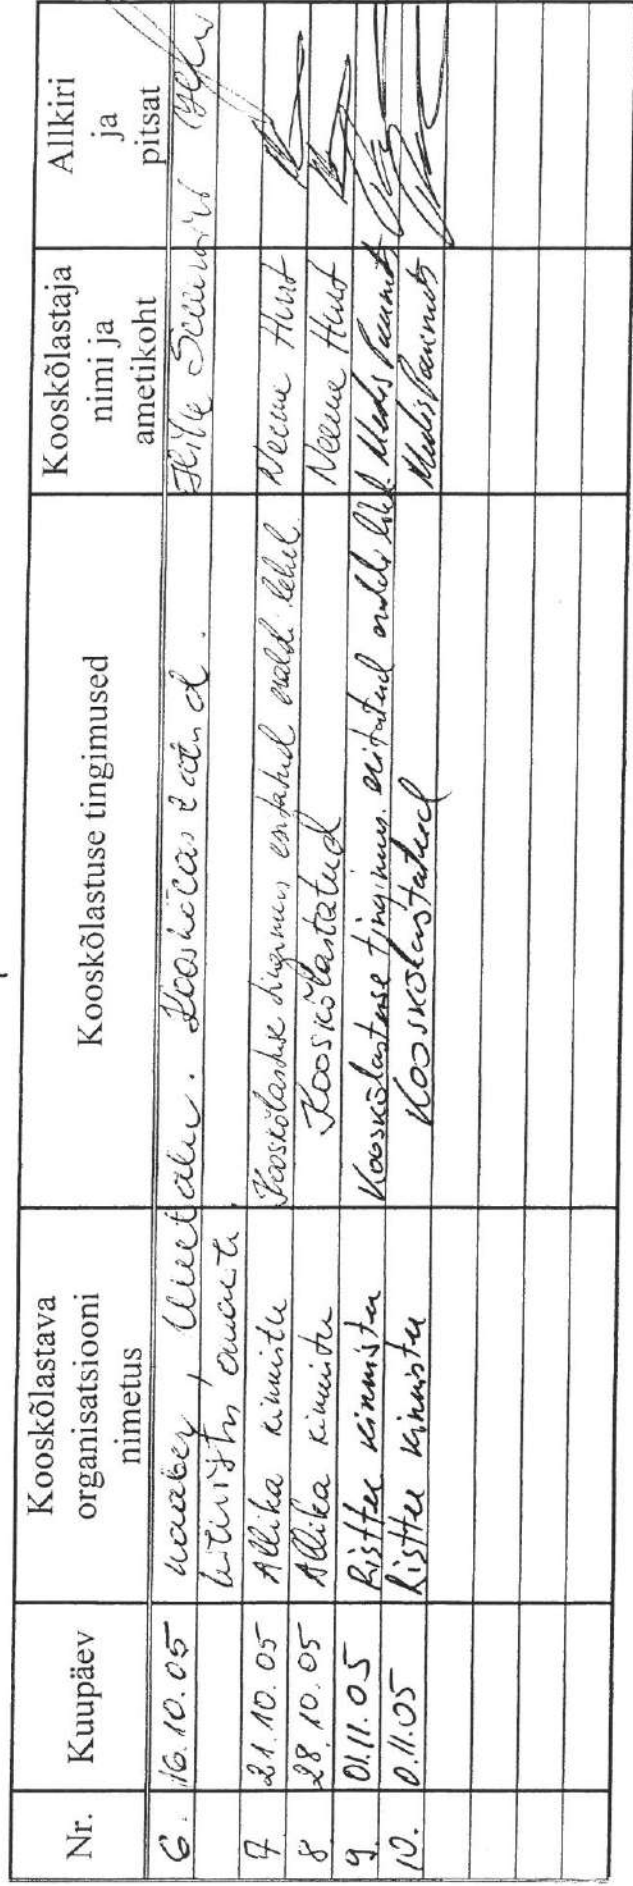 Nr. Kuupäev Kooskõlastava organisatsiooni nimetus Kooskõlastuse tingimused Kooskõlastaja nimi ja ametikoht Allkiri ja pitsat
6. 16.10.05 naaber, Kooskõlastatud.
kinnistu omanik
7 21.10.05 Allika kinnistu Kooskõlastuse tingimus esitatud eraldi lehel. Neeme Hurt
8 28.10.05 Allika kinnistu Kooskõlastatud Neeme Hurt
9. 01.11.05 Ristteе kinnistu Kooskõlastuse tingimus. esitatud eraldi lehel
10. 0.11.05 Risttee kinnistu Kooskõlastatud